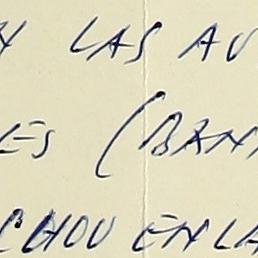 Y LAS AV
ES (BAN
CHOU EN LA